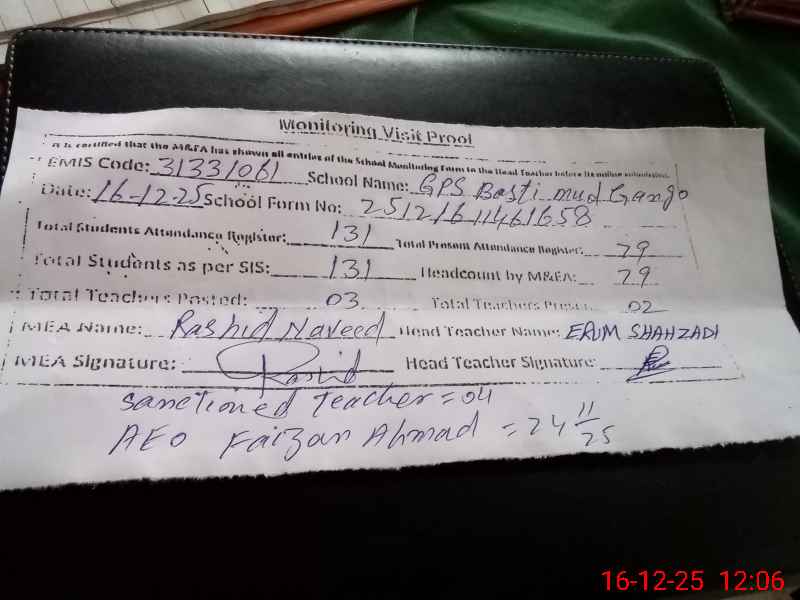 Monitoring Visit Proof
It is certified that the M&EA has shown all entries of the School Monitoring Form to the Head Teacher before its online submission.
EMIS Code: 31331061 School Name: GPS Basti mud Gango
Date: 16-12-25 School Form No: 25121611461658
Total Students Attendance Register: 131 Total Present Attendance Register: 79
Total Students as per SIS: 131 Headcount by M&EA: 79
Total Teachers Posted: 03 Total Teachers Present: 02
MEA Name: Rashid Naveed Head Teacher Name: ERUM SHAHZADI
MEA Signature: Rashid Head Teacher Signature:
Sanctioned Teacher = 04
AEO Faizan Ahmad = 24 11/25
16-12-25 12:06